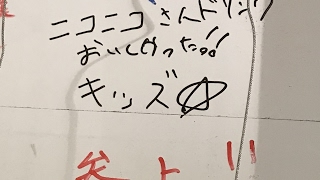 ニコニコさんドリンク
おいしかった!!
キッズ☆
参上!!